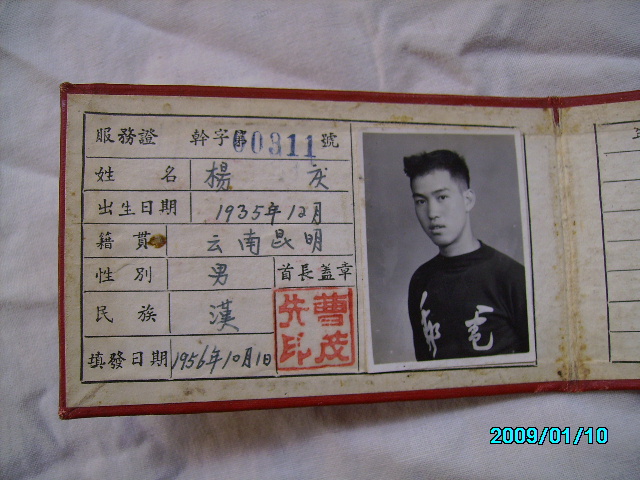 服務證 幹字第00311號
姓名 楊庆
出生日期 1935年12月
籍貫 云南昆明
性别 男 首長盖章
民族 漢
曹茂先印
填發日期 1956年10月1日
郵電
2009/01/10